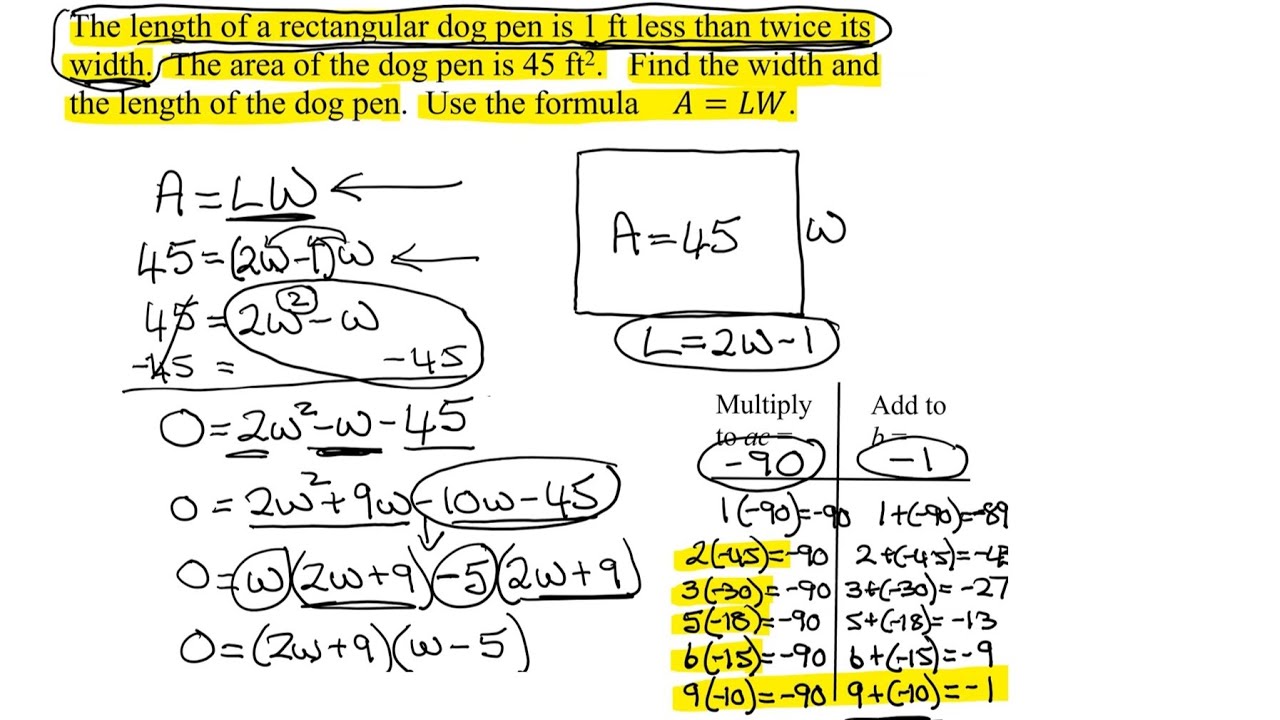 The length of a rectangular dog pen is 1 ft less than twice its
width. The area of the dog pen is 45 ft². Find the width and
the length of the dog pen. Use the formula A = LW.
A = LW
45 = (2w-1)w
45 = 2w² - w
-45 = -45
0 = 2w² - w - 45
0 = 2w² + 9w - 10w - 45
0 = w(2w+9) - 5(2w+9)
0 = (2w+9)(w-5)
A = 45 w
L = 2w-1
Multiply Add to
to ac = b =
-90 -1
1(-90)=-90 1+(-90)=-89
2(-45)=-90 2+(-45)=-4
3(-30)=-90 3+(-30)=-27
5(-18)=-90 5+(-18)=-13
6(-15)=-90 6+(-15)=-9
9(-10)=-90 9+(-10)=-1